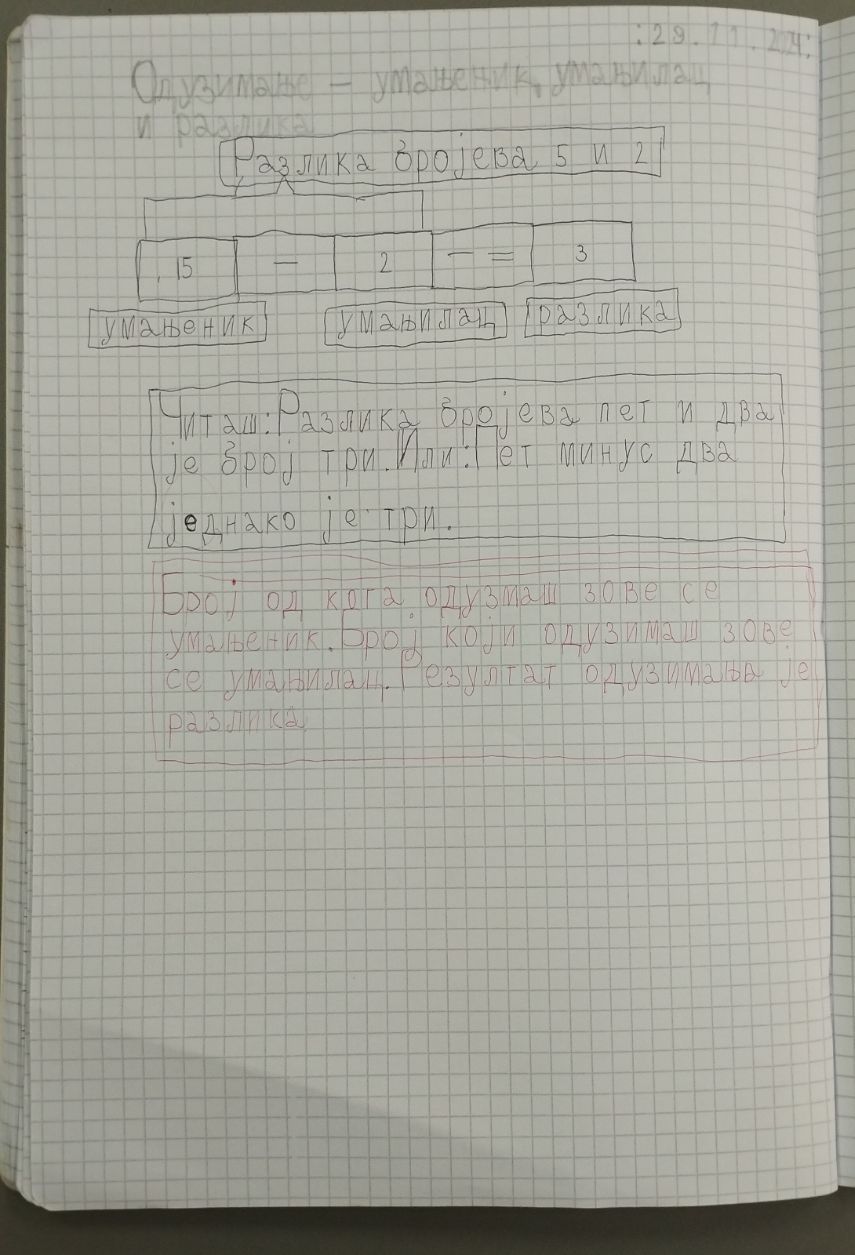 29.11.2024.
Одузимање – умањеник, умањилац
и разлика
Разлика бројева 5 и 2
15 – 2 – = 3
умањеник умањилац разлика
Читаш: Разлика бројева пет и два
је број три. Или: Пет минус два
једнако је три.
Број од кога одузмаш зове се
умањеник. Број који одузимаш зове
се умањилац. Резултат одузимања је
разлика